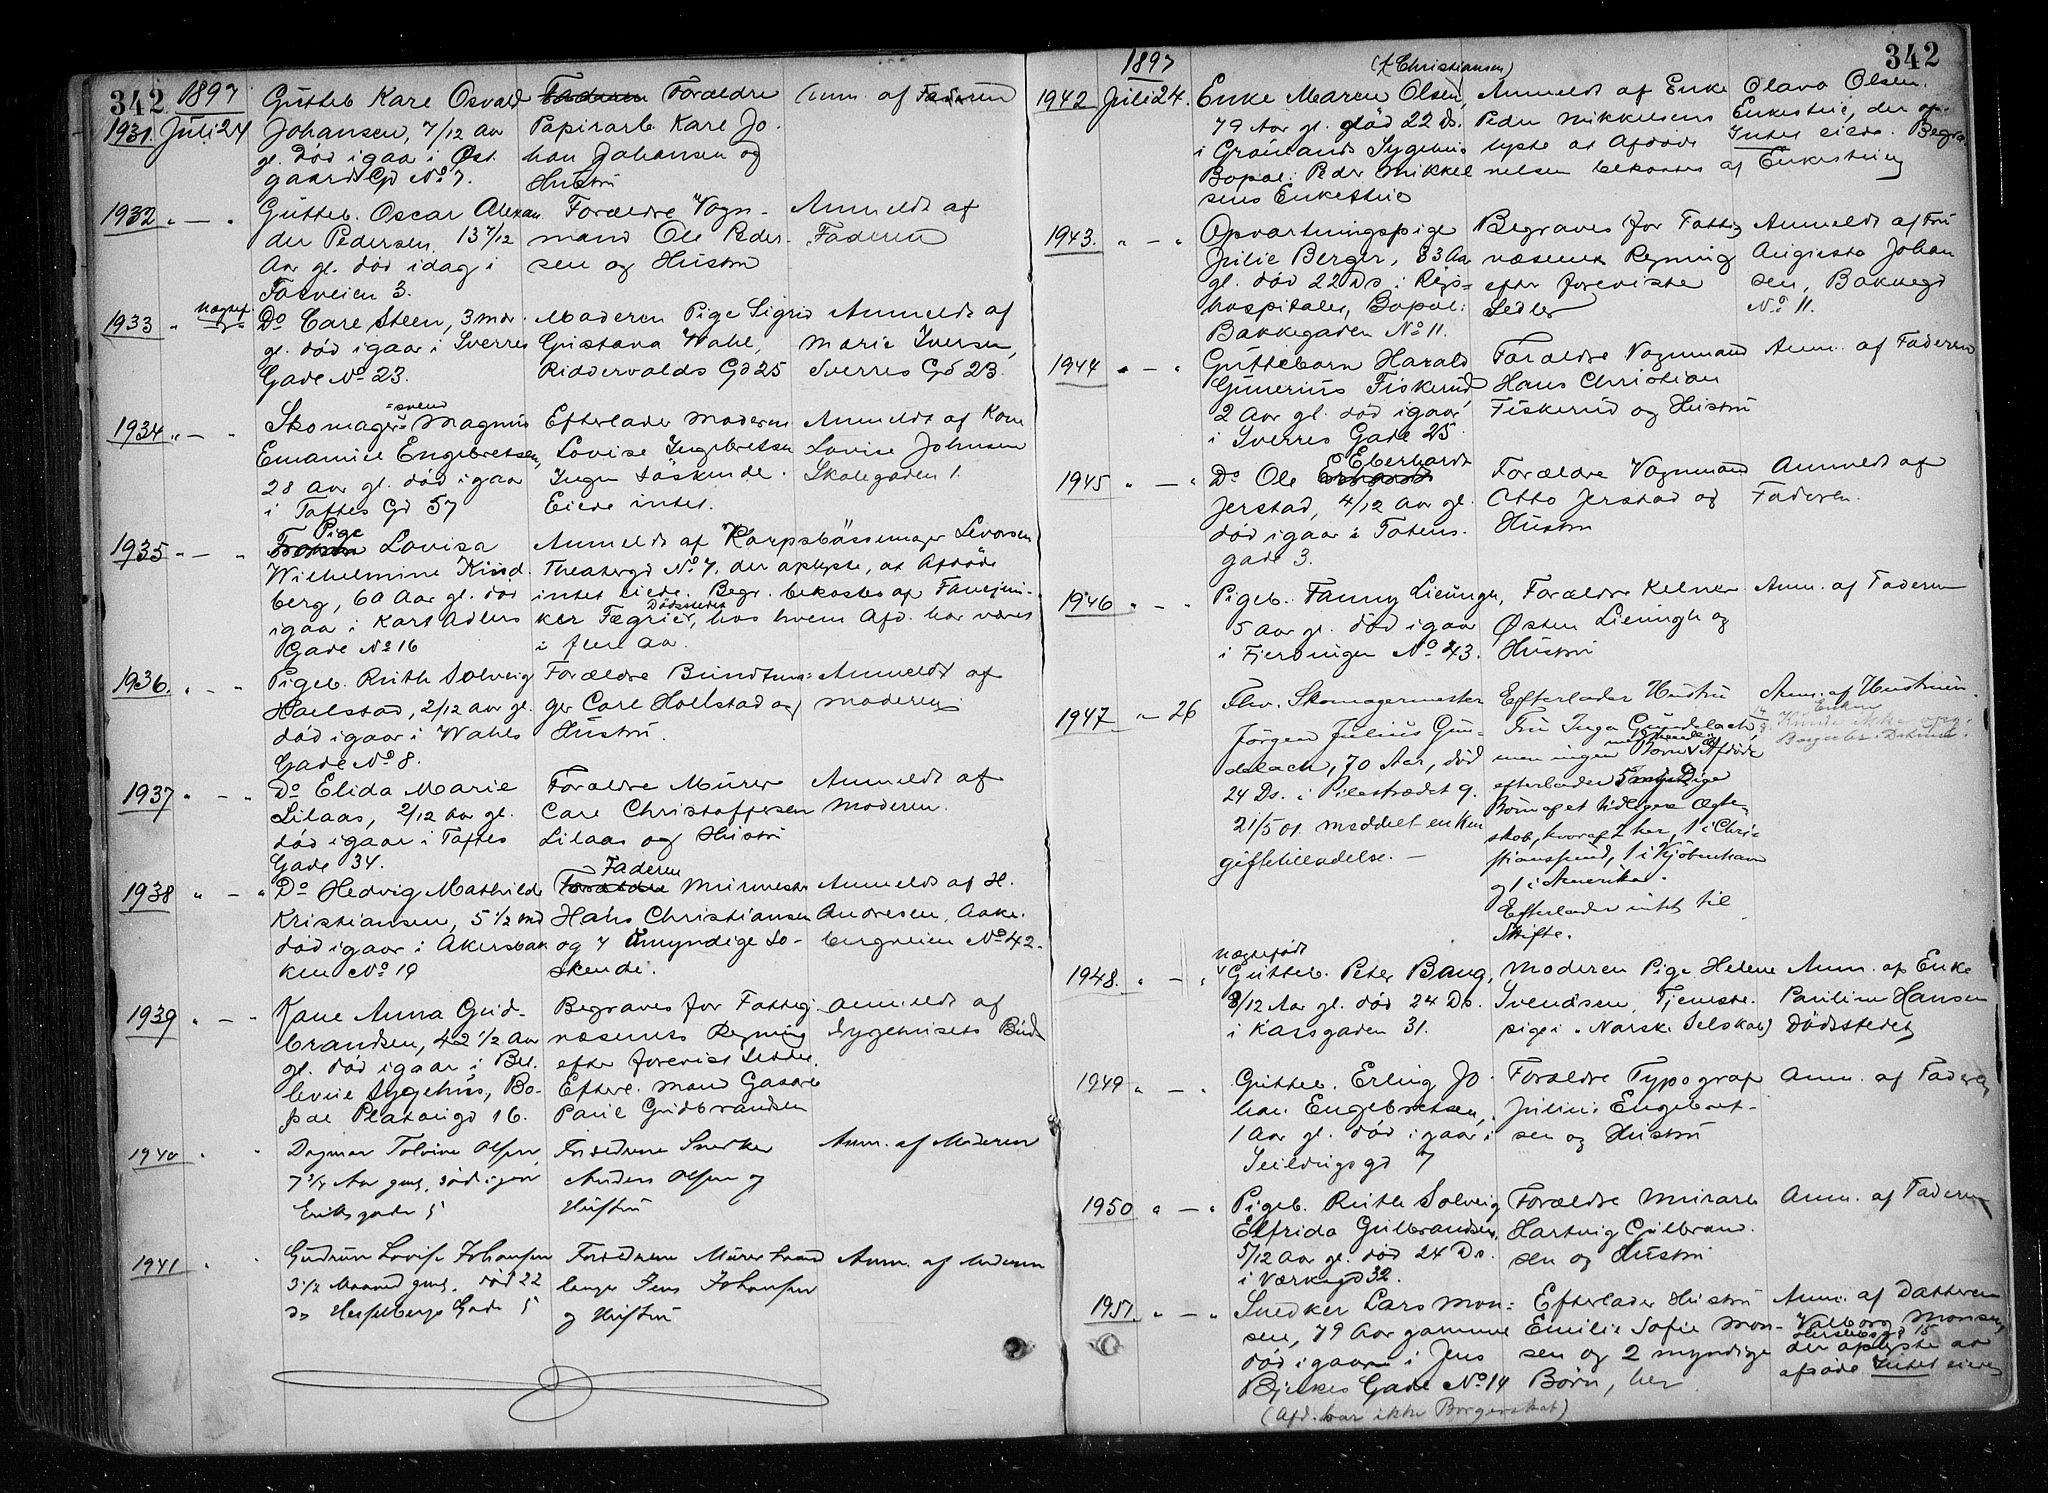 342
1897
1931. Juli 24
Gutteb Karl Osvald
Johansen, 7/12 Aar
gl. død igaar i Øst
gaards Gd No 7.
Faderen Forældre
Papirarb. Karl Jo
han Johansen og
Hustru
Anm. af Faderen
1932 " — "
Gutteb. Oscar Alexan
der Pedersen, 13 7/12
Aar gl. død idag i
Fossveien 3.
Forældre Vogn
mand Ole Peder
sen og Hustru
Anmeldt af
Faderen
1933 "
Do Carl Steen, 3 mdr
gl. død igaar i Sverres
Gade No 23.
Moderen Pige Sigrid
Gustava Wahl,
Riddervolds Gd 25
Anmeldt af
Marie Iversen,
Sverres Gd 23.
1934 " — "
svend
Skomager Magnus
Emanuel Engebretsen,
28 Aar gl. død igaar
i Toftes Gd 57
Efterlader Moderen
Lovise Ingebretsen
Ingen Søskende.
Eiede intet.
Anmeldt af Kone
Lovise Johnsen
Skolegaden 1.
1935 " — "
Pige
Lovisa
Wilhelmine Kind
berg, 60 Aar gl. død
igaar i Karl Adlers
Gade No 16
Anmeldt af Korpsbøssemager Levorsen
Theatergd No 7, der oplyste, at Afdøde
intet eiede. Begr. bekostes af Fanejun
Dødsstedet
ker Fægrier, hos hvem Afd. har været
i flere Aar.
1936. " — "
Pigeb. Ruth Solveig
Hollstad, 2/12 Aar gl.
død igaar i Wahls
Gade No 8.
Forældre Bundtma
ger Carl Hollstad og
Hustru.
Anmeldt af
Moderen
1937 " — "
Do Elida Marie
Lilaas, 2/12 Aar gl.
død igaar i Toftes
Gade 34.
Forældre Murer
Carl Christoffersen
Lilaas og Hustru
Anmeldt af
Moderen.
1938 " — "
Do Hedvig Mathilde
Kristiansen, 5 1/2 Md
død igaar i Akersbak
ken No 19
Faderen
Forældre Murmester
Hans Christiansen
og 7 umyndige Sø
skende.
Anmeldt af H.
Andresen, Aake
bergveien No 42.
1939 " — "
Kone Anna Gud
brandsen, 42 1/2 Aar
gl. død igaar i Bel
levue Sygehus, Bo
pæl Platougd 16.
Begraves for Fattig
væsenets Regning
efter forevist Seddel.
Efterl. Mand Gaard
Paul Gudbrandsen
Anmeldt af
Sygehusets Bud
1940 " "
Dagmar Tolvine Olsen,
7 3/4 Aar gml, død igaar
Eriks gade 5
Forældrene Snedker
Anders Olsen og
Hustru
Anm. af Moderen
1941 " "
Gudrun Lovise Johansen
3 1/2 Maaned gml. død 22
ds Hesselbergs Gade 5
Forældrene Murerhaand
langer Jens Johansen
og Hustru
Anm. af Moderen
342
1897
(f. Christiansen)
1942 Juli 24.
Enke Maren Olsen,
79 Aar gl. død 22 Ds.
i Grønlands Sygehus
Bopæl: Peder Mikkel
sens Enkestue
Anmeldt af Enke Olava Olsen.
Peder Mikkelsens Enkestue, der op
lyste at Afdøde Intet eiede. Begra
velsen bekostes af Enkestuen
1943. " — "
Opvartningspige
Julie Berger, 33 Aar
gl. død 22 Ds i Rigs
hospitalet, Bopæl:
Bakkegaden No 11.
Begraves for Fattig
væsenets Regning
efter foreviste
Sedler
Anmeldt af Fru
Augusta Johan
sen, Bakkegd
No 11.
1944 " — "
Guttebarn Harald
Gunerius Fiskerud
2 Aar gl. død igaar
i Sverres Gade 25
Forældre Vognmand
Hans Christian
Fiskerud og Hustru
Anm. af Faderen
1945 " — "
Eberhardt
Do Ole
Jerstad, 4/12 Aar gl.
død igaar i Totens
gade 3.
Forældre Vognmand
Otto Jerstad og
Hustru
Anmeldt af
Faderen.
1946 " — "
Pigeb. Fanny Lieungh,
5 Aar gl. død igaar
i Fjerdingen No 43.
Forældre Kelner
Østen Lieungh og
Hustru
Anm. af Faderen
1947 " — 26
Fhv. Skomagermester
Jørgen Julius Gun
delach, 70 Aar, død
24 Ds. i Pilestrædet 9.
21/5 01. meddelt enken
giftetilladelse. —
Efterlader Hustru
Fru Inga Gundelach,
men ingen Børn. Afdøde
efterlader 5 myndige
Børn af et tidligere Ægte
skab, hvoraf 2 her, 1 i Chri
stianssund, 1 i Kjøbenhavn
og 1 i Amerika.
Efterlader intet til
Skifte.
Anm. af Hustruen.
Enken
kunde ikke
1948. " — "
uægtefødt
Gutteb. Peter Bang,
8/12 Aar gl. død 24 Ds.
i Korsgaden 31.
Moderen Pige Helene
Svendsen, Tjeneste
pige i "Norske Selskab"
Anm. af Enke
Pauline Hansen
Dødsstedet
1949 " — "
Gutteb. Erling Jo
han Engebretsen,
1 Aar gl. død igaar i
Seildugsgd 7
Forældre Typograf
Julius Engebret
sen og Hustru
Anm. af Faderen
1950 " — "
Pigeb. Ruth Solveig
Elfrida Gulbrandsen,
5/12 Aar gl. død 24 Ds.
i Værksgd 32.
Forældre Murarb
Hartvig Gulbrand
sen og Hustru
Anm. af Faderen
1951. " — "
Snedker Lars Mon
sen, 79 Aar gammel
død igaar i Jens
Bjelkes Gade No 14
(Afd. har ikke Borgerskab)
Efterlader Hustru
Emilie Sofie Mon
sen og 2 myndige
Børn, her
Anm. af Datteren
Valborg Monsen,
Herslebsgd 15
der oplyste at
afdøde Intet eiede